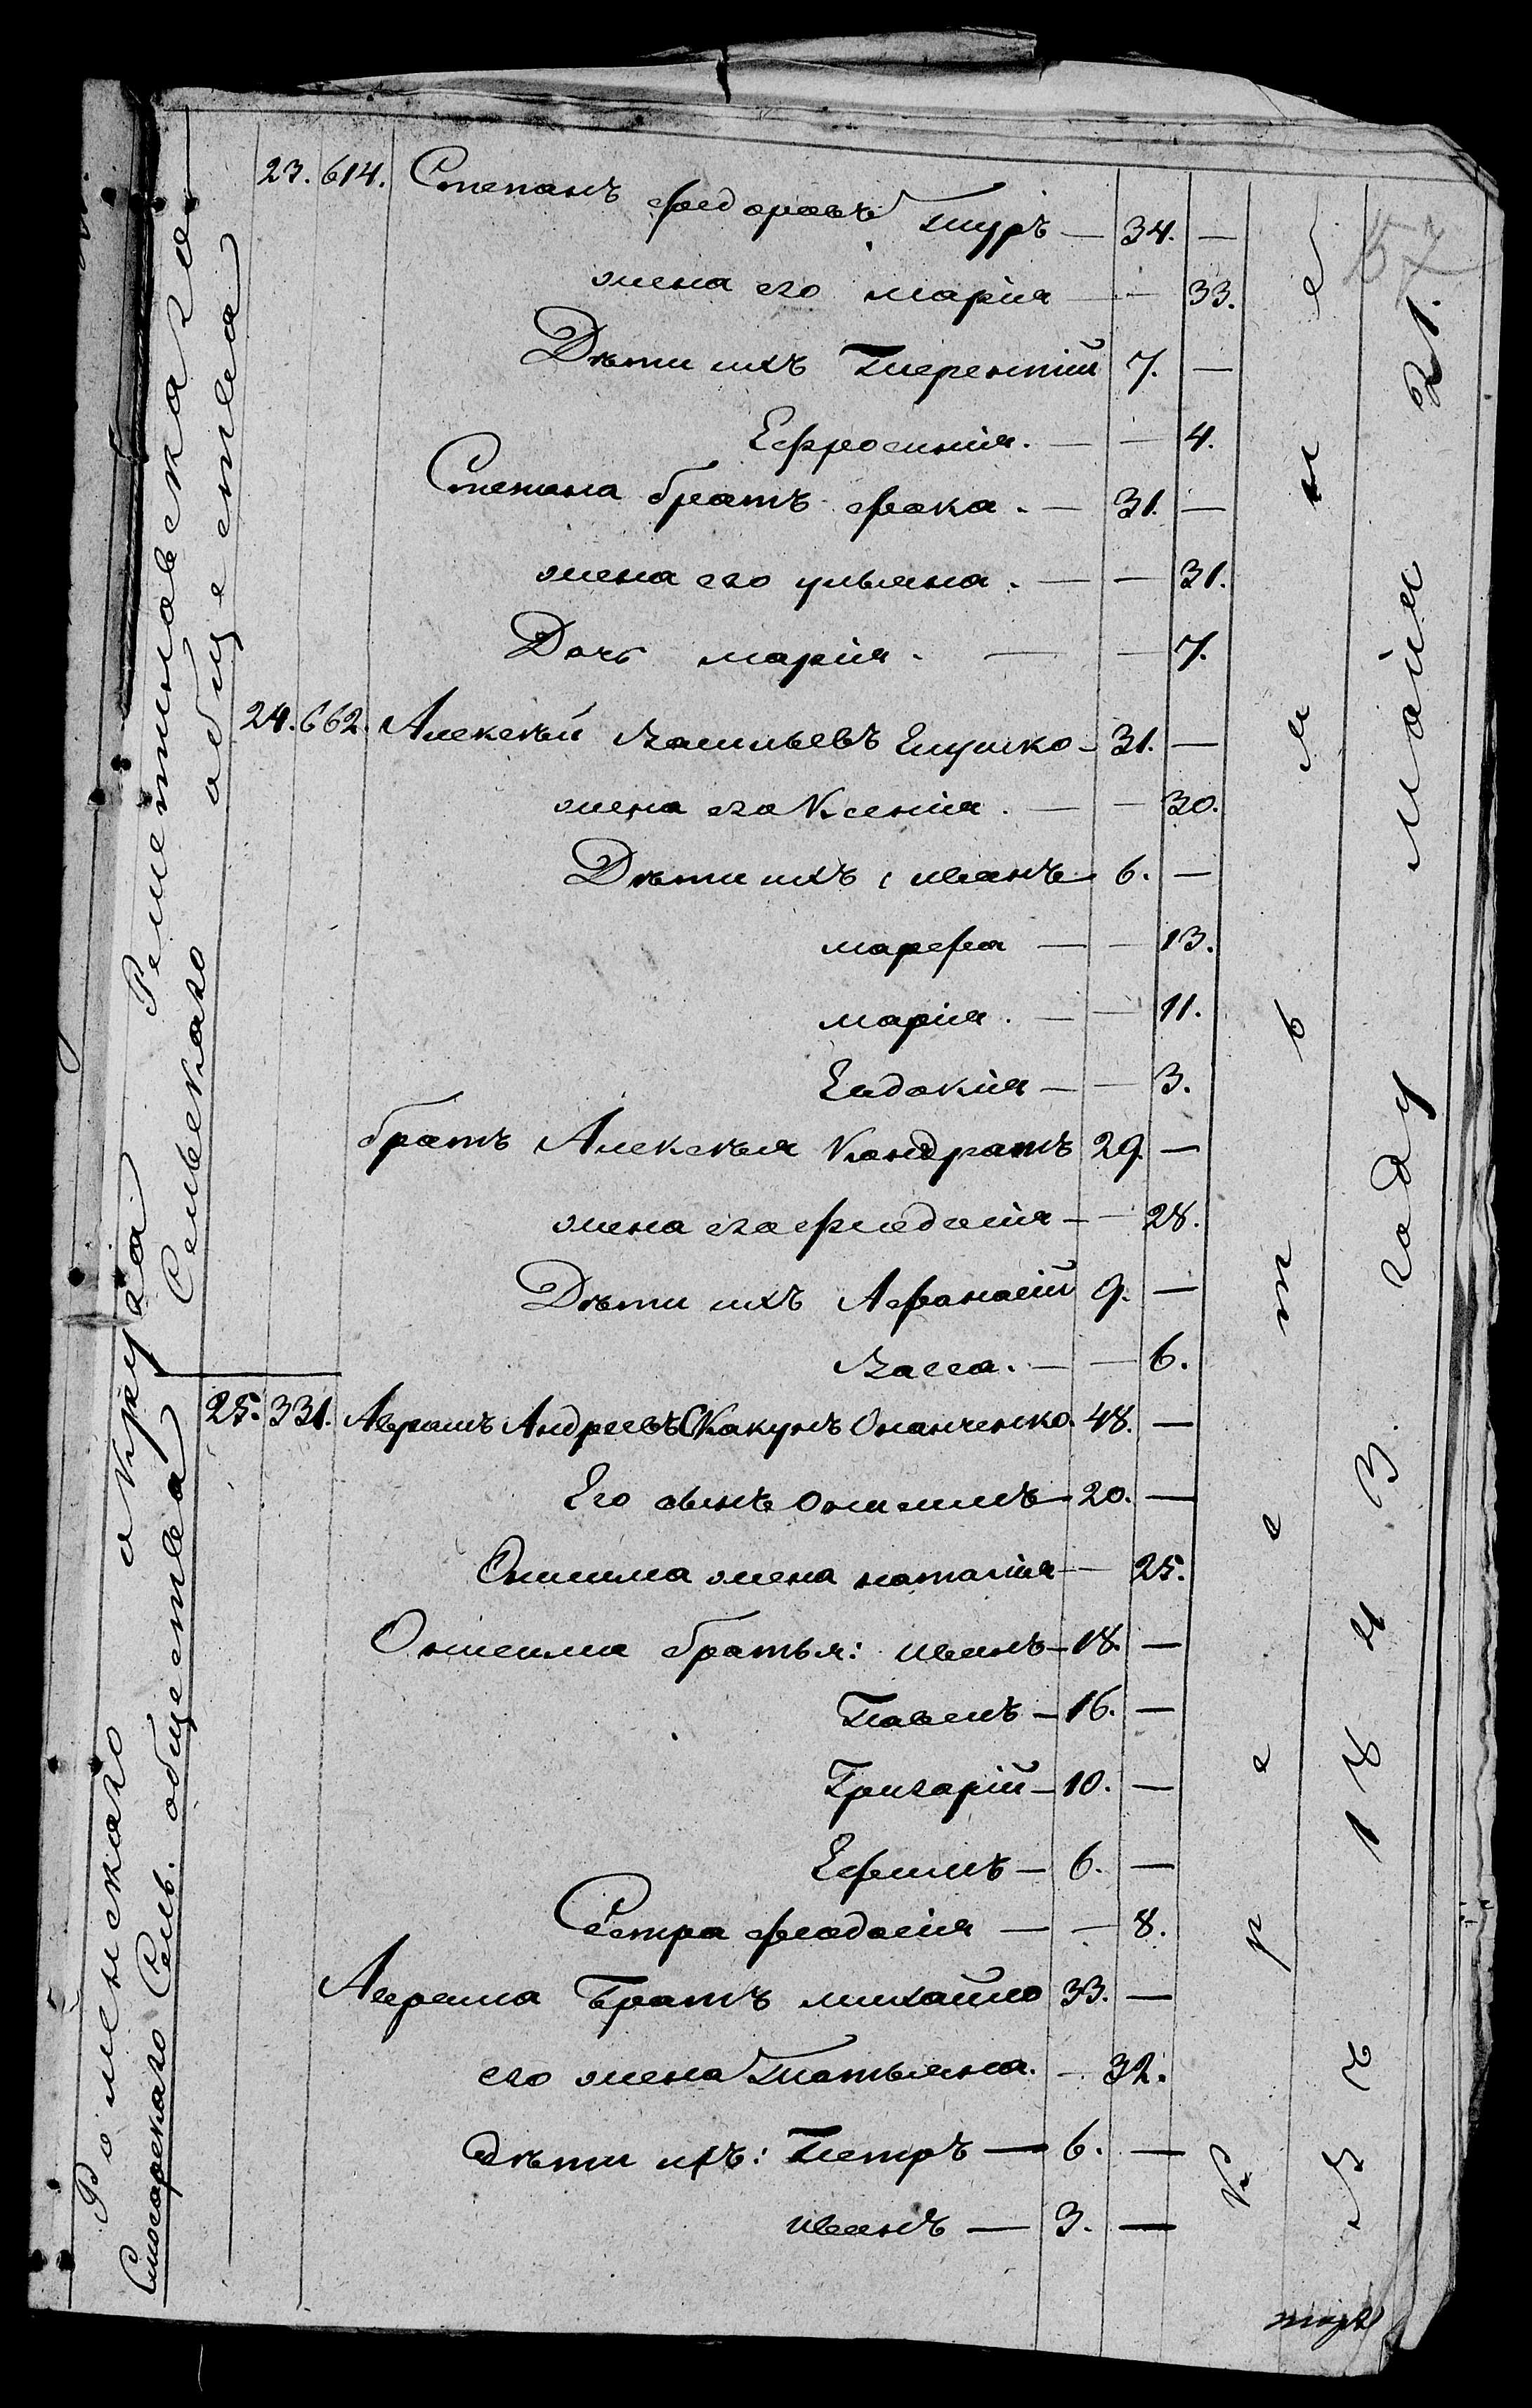 57
Роменскаго округа
Решетиловскаго
Сельскаго общества
23. 614. Степанъ федоровъ Тнуръ — 34. —
жена его марія — — 33.
Дѣти ихъ Терентій 7. —
Ефросинія. — — 4.
Степана братъ фока. — 31. —
жена его ульяна. — — 31.
Дочь марія. — — 7.
24. 662. Алексѣй Васильевъ Глушко — 31. —
жена его Ксенія. — — 30.
Дѣти ихъ: иванъ 6. —
марфа — — 13.
марія. — — 11.
Евдокія — — 3.
братъ Алексѣя Кондратъ 29. —
жена его феодосія — — 28.
Дѣти ихъ Афанасій 9. —
Васса. — — 6.
Смогорскаго Сель. общества
25. 331. Аврамъ Андреевъ Скакунъ Онанченко. 48. —
Его сынъ Онисимъ — 20. —
Онисима жена наталія — — 25.
Онисима братья: иванъ — 18. —
Павелъ — 16. —
Григорій — 10. —
Ефимъ — 6. —
Сестра феодосія — — 8.
Аврама Братъ михайло 33. —
его жена Татьяна. — 32.
дѣти ихъ: Петръ — 6. —
иванъ — 3. —
Крестьяне
Въ 1843. году маія 21.